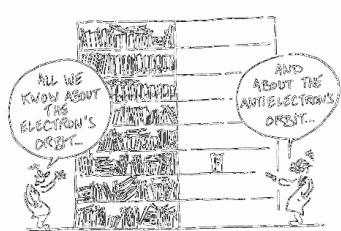 ALL WE
KNOW ABOUT
THE
ELECTRON'S
ORBIT...
AND
ABOUT THE
ANTIELECTRON'S
ORBIT...